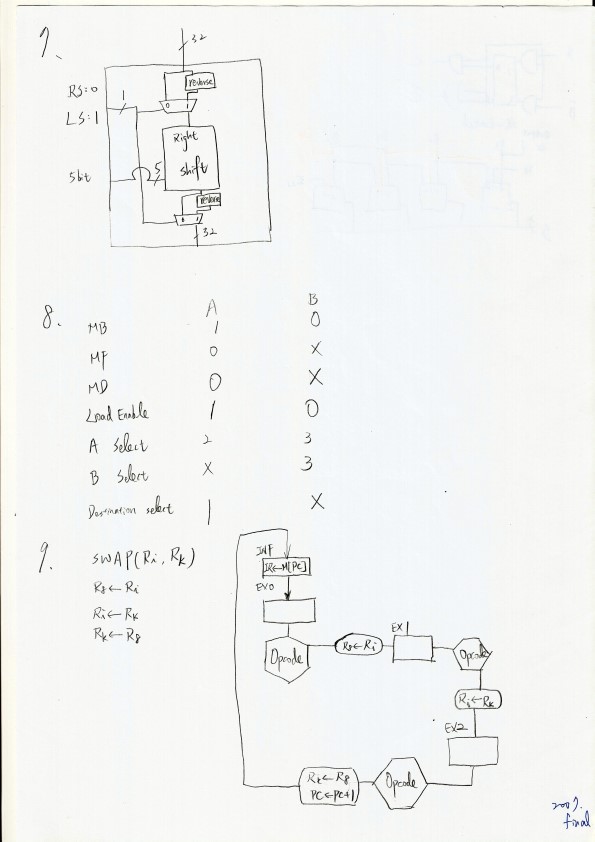 7.
32
reverse
RS:0
LS:1
1
0 1
Right
shift
5bit
5
reverse
0 1
32
8.
A B
MB 1 0
MF 0 X
MD 0 X
Load Enable 1 0
A select 2 3
B select X 3
Destination select 1 X
9.
SWAP(Ri, Rk)
R8←Ri
Ri←Rk
Rk←R8
INF
IR←M[PC]
EX0
Opcode
R8←Ri
EX1
Opcode
Ri←Rk
EX2
Opcode
Rk←R8
PC←PC+1
2007.
final